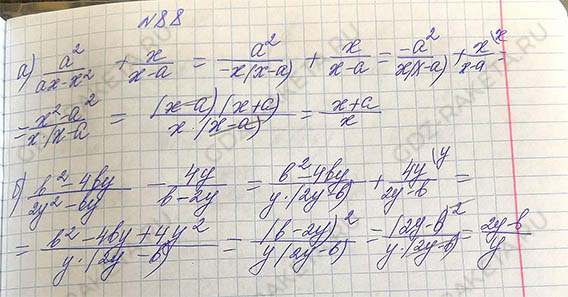 N188
а) a²/(ax-x²) + x/(x-a) = a²/(-x(x-a)) + x/(x-a) = -a²/(x(x-a)) + x\x/(x-a) =
= (x²-a²)/(x·(x-a)) = ((x-a)(x+a))/(x·(x-a)) = (x+a)/x
б) (b²-4by)/(2y²-by) - 4y/(b-2y) = (b²-4by)/(y·(2y-b)) + 4y\y/(2y-b) =
= (b²-4by+4y²)/(y·(2y-b)) = (b-2y)²/(y(2y-b)) = (2y-b)²/(y·(2y-b)) = (2y-b)/y
GDZ-RAKETA.RU